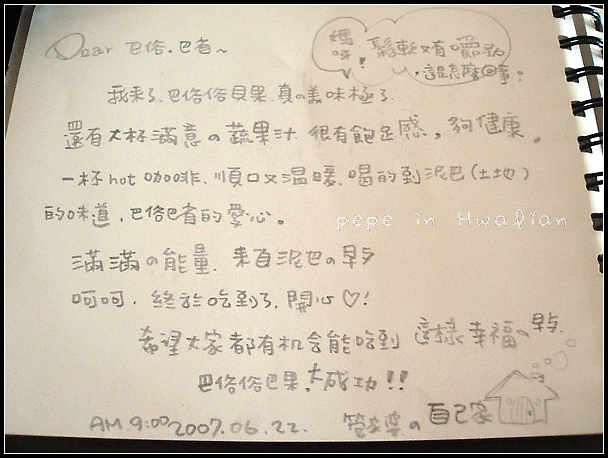 Dear 巴俗.巴者~
媽呀!鬆軟又有嚼勁
,這是怎麼回事。
我來了.巴俗俗貝果.真の美味極了.
還有大杯滿意の蔬果汁.很有飽足感,夠健康。
一杯hot咖啡.順口又溫暖.喝的到泥巴(土地)
的味道.巴俗巴者的愛心。
pepe in Hwalian
滿滿の能量.來自泥巴の早午
呵呵.終於吃到了.開心♡!
希望大家都有机会能吃到 這樣幸福の早午.
巴俗俗巴果.大成功!!
AM.9:00 2007.06.22. 管家婆の自己家